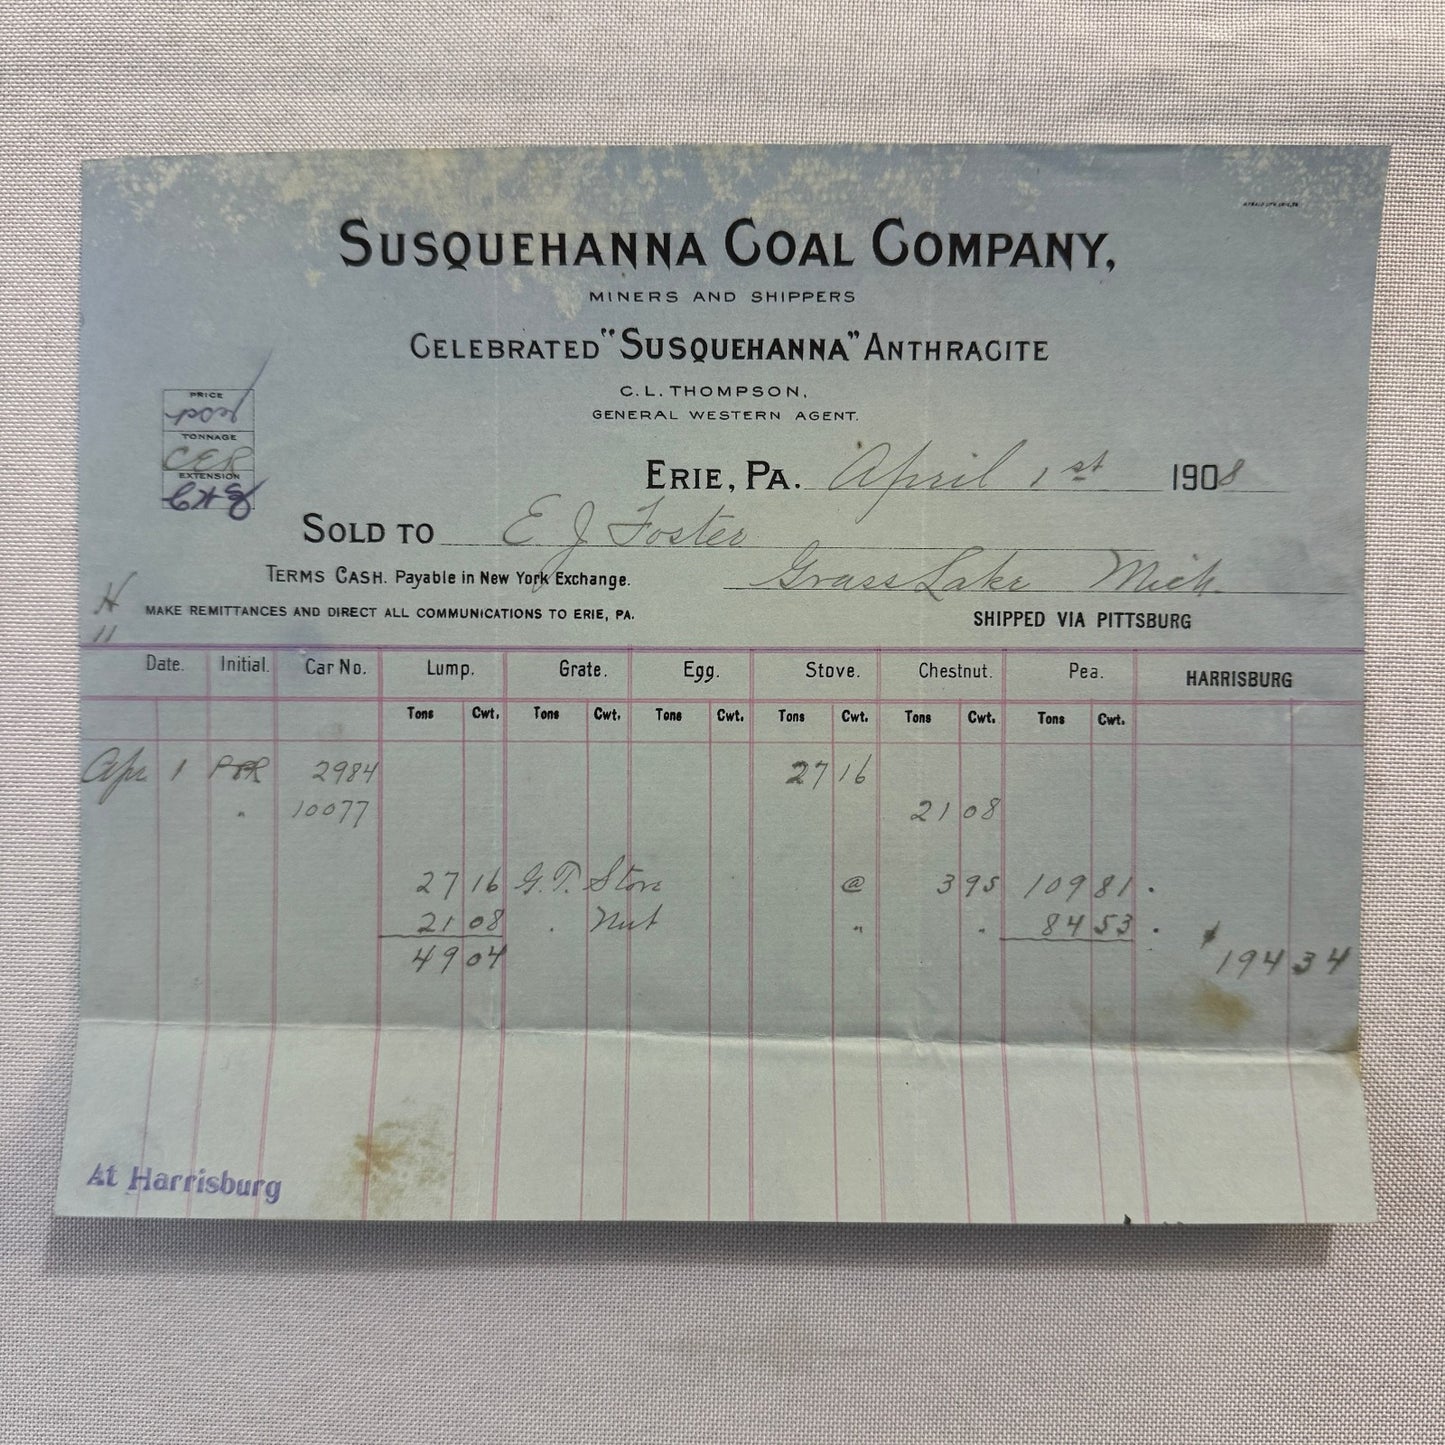 SUSQUEHANNA COAL COMPANY,
MINERS AND SHIPPERS
CELEBRATED "SUSQUEHANNA" ANTHRACITE
C. L. THOMPSON,
GENERAL WESTERN AGENT.
PRICE
TONNAGE
CER
EXTENSION
ERIE, PA. April 1st 1908
SOLD TO E J Foster
TERMS CASH. Payable in New York Exchange. Grass Lake Mich.
H
11
MAKE REMITTANCES AND DIRECT ALL COMMUNICATIONS TO ERIE, PA. SHIPPED VIA PITTSBURG
Date. Initial. Car No. Lump. Grate. Egg. Stove. Chestnut. Pea. HARRISBURG
Tons Cwt. Tons Cwt. Tons Cwt. Tons Cwt. Tons Cwt. Tons Cwt.
Apr 1 PRR 2984 27 16
" 10077 21 08
27 16 G.T. Stove @ 3 95 109 81 .
21 08 . Nut " " 84 53 .
49 04 $194 34
At Harrisburg